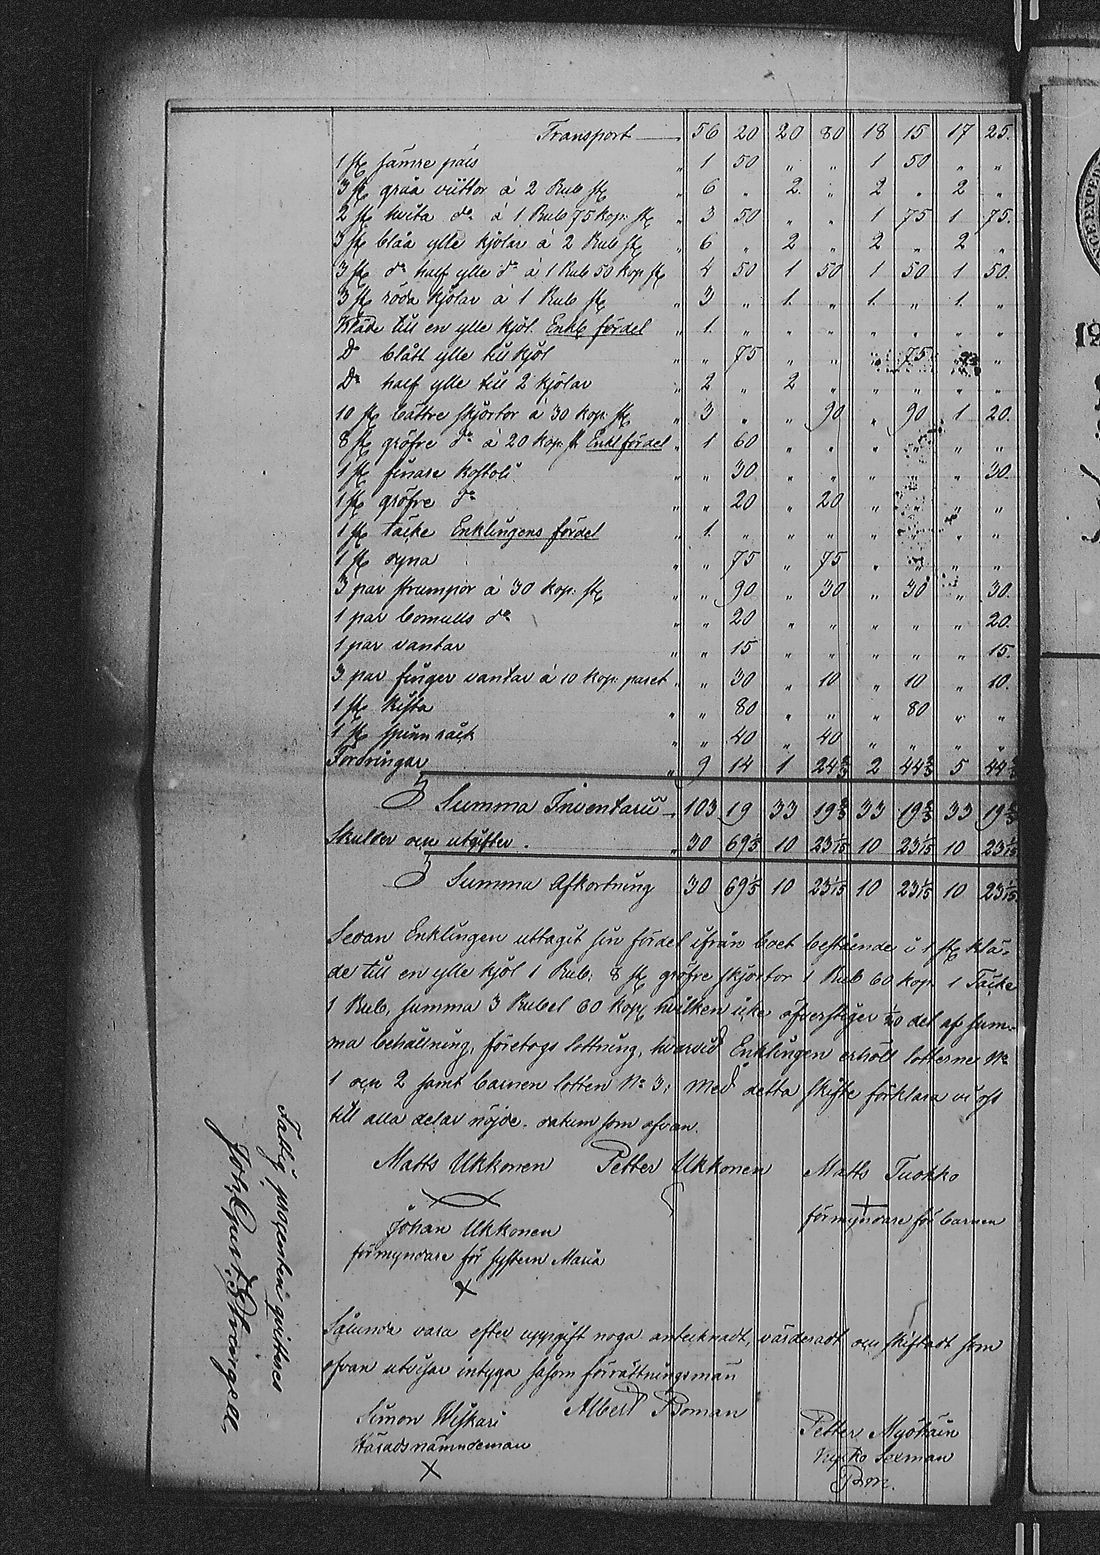 Transport — „ 56 20 20 80 18 15 17 25.
1 st sämre päls „ 1 50 „ „ 1 50 „ „
3 st gråa vüttor à 2 Rub st „ 6 „ 2 „ 2 „ 2 „
2 st hvita do à 1 Rub 75 kop: st „ 3 50 „ „ 1 75 1 75.
3 st blåa ylle kjolar à 2 Rub st „ 6 „ 2 „ 2 „ 2 „
3 st do half ylle do à 1 Rub 50 kop st „ 4 50 1 50 1 50 1 50.
3 st röda kjolar à 1 Rub st „ 3 „ 1 „ 1 „ 1 „
Kläde till en ylle kjol. Enkl fördel „ 1 „ „ „ „ „ „ „
Do blått ylle till kjol „ „ 75 „ „ „ 75 „ „
Do half ylle till 2 kjolar „ 2 „ 2 „ „ „ „ „
10 st bättre skjortor à 30 kop: st „ 3 „ „ 90 „ 90 1 20.
8 st gröfre do à 20 kop: st Enkl fördel „ 1 60 „ „ „ „ „ „
1 st finare „ „ 30 „ „ „ „ „ 30.
1 st gröfre do „ „ 20 „ 20 „ „ „ „
1 st täcke Enklingens fördel „ 1 „ „ „ „ „ „ „
1 st dyna „ „ 75 „ 75 „ „ „ „
3 par strumpor à 30 kop: st „ „ 90 „ 30 „ 30 „ 30.
1 par bomulls do „ „ 20 „ „ „ „ „ 20.
1 par vantar „ „ 15 „ „ „ „ „ 15.
3 par finger vantar à 10 kop: paret „ „ 30 „ 10 „ 10 „ 10.
1 st kista „ „ 80 „ „ „ 80 „ „
1 st spinnråck „ „ 40 „ 40 „ „ „ „
Fordringar „ 9 14 1 24 2/3 2 44 2/3 5 44 2/3
Summa Inventarii — 103 19 33 19 2/3 33 19 2/3 33 19 2/3
Skulder och utgifter . „ 30 69 1/5 10 23 1/15 10 23 1/15 10 23 1/15
Summa Afkortning 30 69 1/5 10 23 1/15 10 23 1/15 10 23 1/15
Sedan Enklingen uttagit sin fördel ifrån boet bestående i 1 st klä-
de till en ylle kjol 1 Rub: 8 st gröfre skjortor 1 Rub 60 kop: 1 Täcke
1 Rub, summa 3 Rubel 60 kop, hvilken icke öfverstiger 1/20 del af sum-
ma behållning, företogs lottning, hvarvid Enklingen erhölt lotterne No
1 och 2 samt barnen lotten No 3; med detta skifte förklara vi oss
till alla delar nöjde. datum som ofvan.
Matts Ukkonen Petter Ukkonen Matts Tuokko
förmyndare för barnen
Johan Ukkonen
förmyndare för systern Maria
Sålunda vara efter uppgift noga antecknadt, värderadt och skiftadt som
ofvan utvisar intyga såsom förrättningsmän
Simon Wiskari Albert Boman Petter Myöhäin
Häradsnämndeman
Fattig procenten qvitteras
Joh. Gust. Strängell